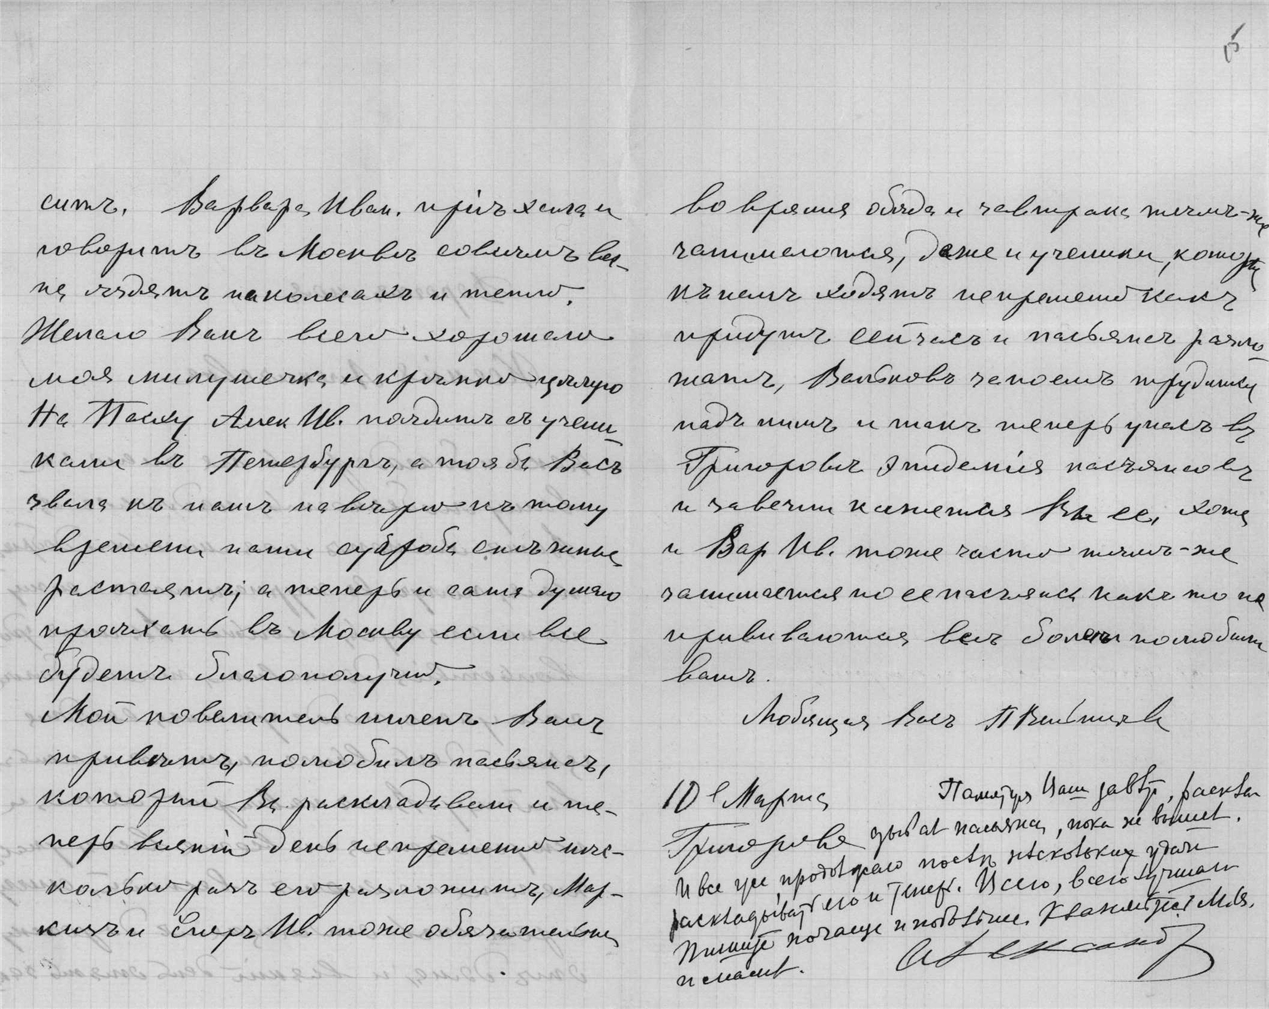 ситъ. Варвара Иван. пріѣхала и
говоритъ въ Москвѣ совсѣмъ вес-
на ѣздятъ на колесахъ и тепло.
Желаю Вамъ всего хорошаго
моя милушечка и крѣпко цѣлую
На Пасху Алек Ив. поѣдитъ съ учени
ками въ Петербургъ, а то я бы Васъ
звала къ намъ на вѣрно къ тому
времени наши сугробы снѣжные
растаятъ; а теперь и сама думаю
проѣхать въ Москву если все
будетъ благополучно.
Мой повелитель шлетъ Вамъ
привѣтъ, полюбилъ пасьянсъ,
который Вы раскладывали и те-
перь всякій день непременно нѣс-
колько разъ его разложитъ, Мар-
кизъ и Ив. тоже обязательно
во время обѣда и завтрака тѣмъ-же
занимаются, даже и ученики, которые
къ намъ ходятъ непременно какъ
придутъ сейчасъ и пасьянсъ разло-
жатъ, запоемъ трудится
надъ нимъ и такъ теперь у насъ въ
Григоровѣ эпидемія пасьянсовъ
и завезли кажется Вы ее, хотя
и Вар Ив. тоже часто тѣмъ-же
занимается но ее пасьянсы какъ то не
прививаются всѣ болѣе полюбили
вашъ.
Любящая Васъ П
5
10е Марта
Григорово
Памятуя Ваш завѣт, расклад
дывать пасьянсъ, пока не выйдет.
И все уже продолжаю послѣ нѣсколькихъ удачъ
раскладывать его и теперь. Всего, всего лучшаго
Пишите почаще и побольше. Кланяется Мля.
и
Александр